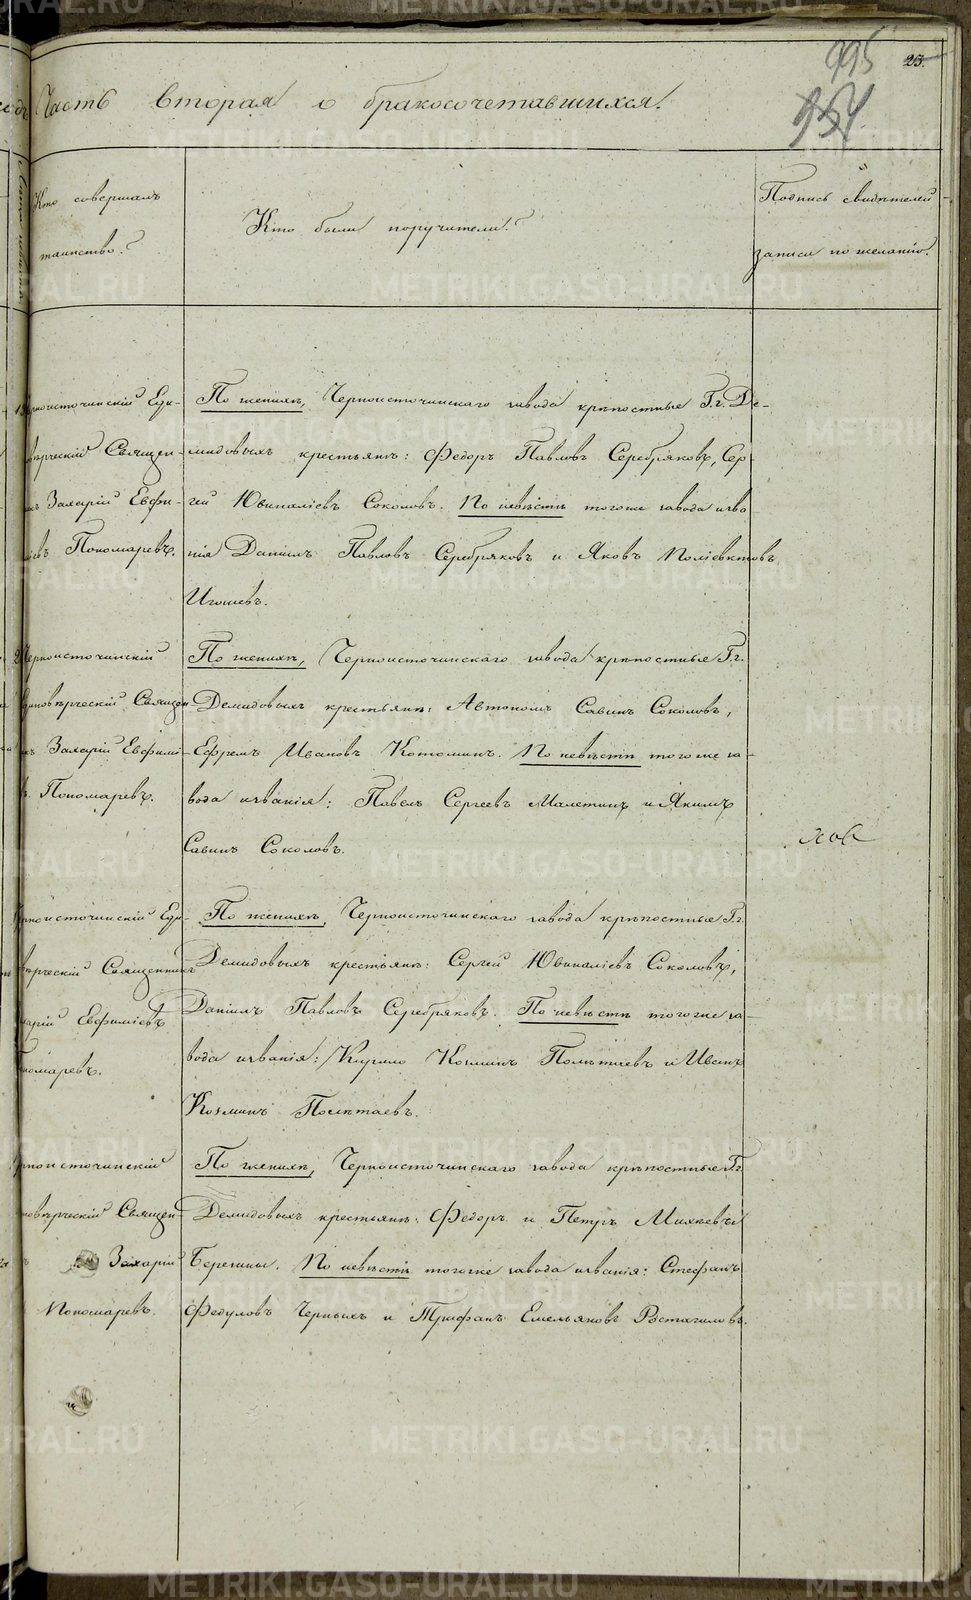 995
23.
954
Часть вторая о бракосочетавшихся.
Кто совершалъ
таинство?
Кто были поручители?
Подпись свидѣтелей
записи по желанію.
рноисточинскій Еди-
вѣрческій Священ-
Захарій Евфи-
міевъ Пономаревъ.
По женихѣ, Черноисточинскаго завода крѣпостные Г.г. Де-
мидовыхъ крестьяне: Федоръ Павловъ Серебряковъ, Сер-
гей Ювиналіевъ Соколовъ. По невѣстѣ тогоже завода изва-
нія Даніилъ Павловъ Серебряковъ и Яковъ Поліевктовъ
Игошевъ.
Черноисточинскій
диновѣрческій Священ-
Захарій Евфимі-
Пономаревъ.
По женихѣ, Черноисточинскаго завода крѣпостные Г.г.
Демидовыхъ крестьяне: Автономъ Савинъ Соколовъ,
Ефремъ Ивановъ Котоминъ. По невѣстѣ тогоже за-
вода изванія: Павелъ Сергеевъ Малетинъ и Якимъ
Савинъ Соколовъ.
рноисточинскій Еди-
вѣрческій Священникъ
харій Евфиміевъ
номаревъ.
По женихѣ, Черноисточинскаго завода крѣпостные Г.г.
Демидовыхъ крестьяне: Сергей Ювиналіевъ Соколовъ,
Даніилъ Павловъ Серебряковъ. По невѣстѣ тогоже за-
вода изванія: Кирило Козминъ Полѣтаевъ и Иванъ
Козминъ Полѣтаевъ.
рноисточинскій
новѣрческій Священ-
Захарій
Пономаревъ.
По женихѣ, Черноисточинскаго завода крѣпостные Г.г.
Демидовыхъ крестьяне: Федоръ и Петръ Михѣевы
Берегины. По невѣстѣ тогоже завода изванія: Стефанъ
Федуловъ Черныхъ и Трифанъ Емельяновъ Ростагиловъ.
METRIKI.GASO-URAL.RU